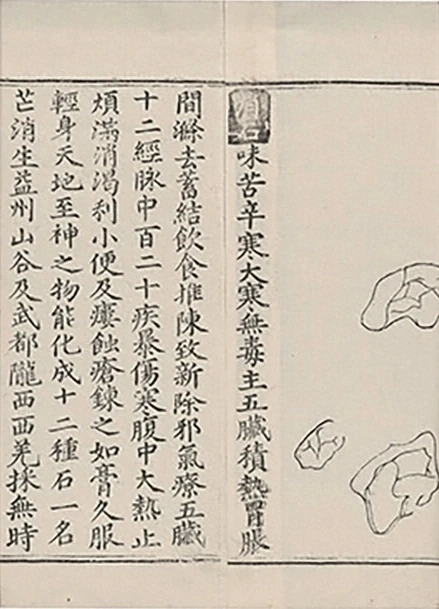 消石味苦辛寒大寒無毒主五臟積熱胃脹
間滌去蓄結飲食推陳致新除邪氣療五臟
十二經脉中百二十疾暴傷寒腹中大熱止
煩滿消渴利小便及瘻蝕瘡鍊之如膏久服
輕身天地至神之物能化成十二種石一名
芒消生益州山谷及武都隴西西羌採無時